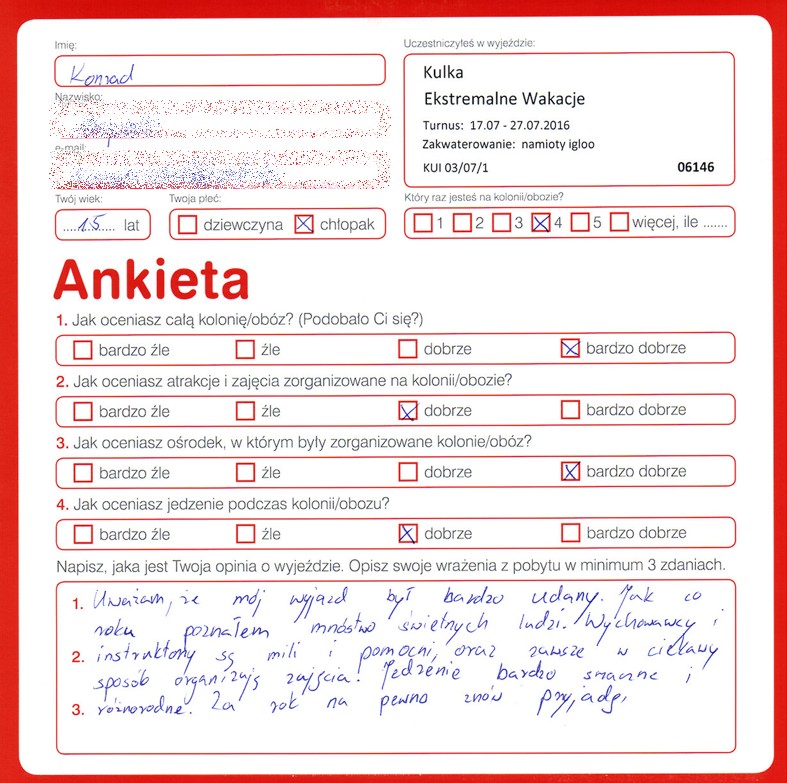 Imię:
Konrad
Nazwisko:
e-mail:
Twój wiek:
15 lat
Twoja płeć:
dziewczyna chłopak
Uczestniczyłeś w wyjeździe:
Kulka
Ekstremalne Wakacje
Turnus: 17.07 - 27.07.2016
Zakwaterowanie: namioty igloo
KUI 03/07/1 06146
Który raz jesteś na kolonii/obozie?
1 2 3 4 5 więcej, ile .......
Ankieta
1. Jak oceniasz całą kolonię/obóz? (Podobało Ci się?)
bardzo źle źle dobrze bardzo dobrze
2. Jak oceniasz atrakcje i zajęcia zorganizowane na kolonii/obozie?
bardzo źle źle dobrze bardzo dobrze
3. Jak oceniasz ośrodek, w którym były zorganizowane kolonie/obóz?
bardzo źle źle dobrze bardzo dobrze
4. Jak oceniasz jedzenie podczas kolonii/obozu?
bardzo źle źle dobrze bardzo dobrze
Napisz, jaka jest Twoja opinia o wyjeździe. Opisz swoje wrażenia z pobytu w minimum 3 zdaniach.
1. Uważam, że mój wyjazd był bardzo udany. Jak co
roku poznałem mnóstwo świetnych ludzi. Wychowawcy i
2. instruktorzy są mili i pomocni, oraz zawsze w ciekawy
sposób organizują zajęcia. Jedzenie bardzo smaczne i
3. różnorodne. Za rok na pewno znów przyjadę.